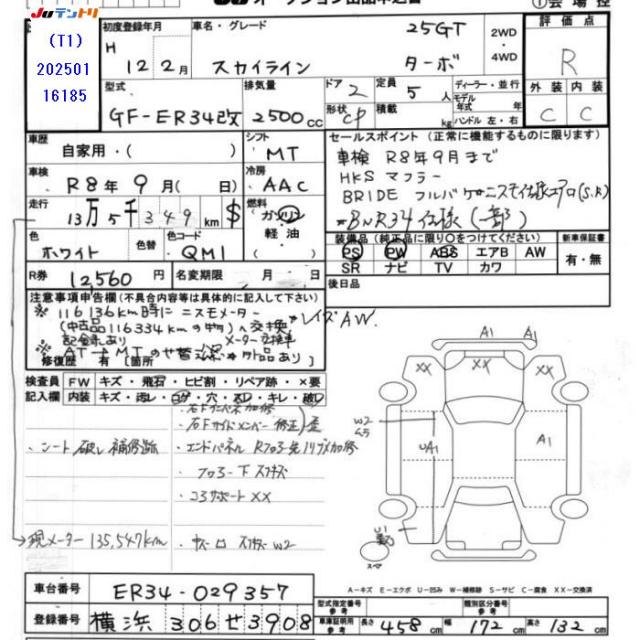 Juテントリ
JU オークション出品申込書
①会場控
(T1)
202501
16185
初度登録年月
H 12年 2月
車名・グレード
スカイライン
25GT
ターボ
2WD
・
4WD
評価点
R
外装 内装
C C
型式
GF-ER34改
排気量
2500cc
ドア 2
形状 CP
定員 5人
積載 kg
ディーラー・並行
モデル年式 年
ハンドル 左・右
車歴
自家用・( )
シフト
MT
車検
R8年9月( 日)
冷房
AAC
走行
13万5千349km $
燃料
ガソリン
軽・油
色
ホワイト
色替
色コード
QM1
R券
12,560円
名変期限 月 日
セールスポイント(正常に機能するものに限ります)
車検 R8年9月まで
HKS マフラー
BRIDE フルバケ ニスモ仕様エアロ(S,R)
*BNR34仕様(一部)
装備品(純正品に限り○をつけてください)
PS PW ABS エアB AW
SR ナビ TV カワ
新車保証書
有・無
後日品
レイズAW.
注意事項申告欄(不具合内容等は具体的に記入して下さい)
※ 116136km時にニスモメーター
(中古品116334kmの物)へ交換
記録あり メーター交換車
※ AT→MTのせ替
修復歴 有 【箇所
検査員記入欄
FW キズ・飛石・ヒビ割・リペア跡・×要
内装 キズ・汚レ・コゲ・穴・スレ・キレ・破レ
・シート破レ補修跡
・エンドパネル
・コアサポートXX
現メーター135,547km
A1
A1
XX
XX
W2
UA1
A1
U1
スペア
車台番号
ER34-029357
登録番号
横浜 306 せ 3908
A−キズ E−エクボ U−凹み W−補修跡 S−サビ C−腐食 XX−交換済
型式指定番号
参考
類別区分番号
参考
車庫証明用参考
長さ 458cm
幅 172cm
高さ 132cm